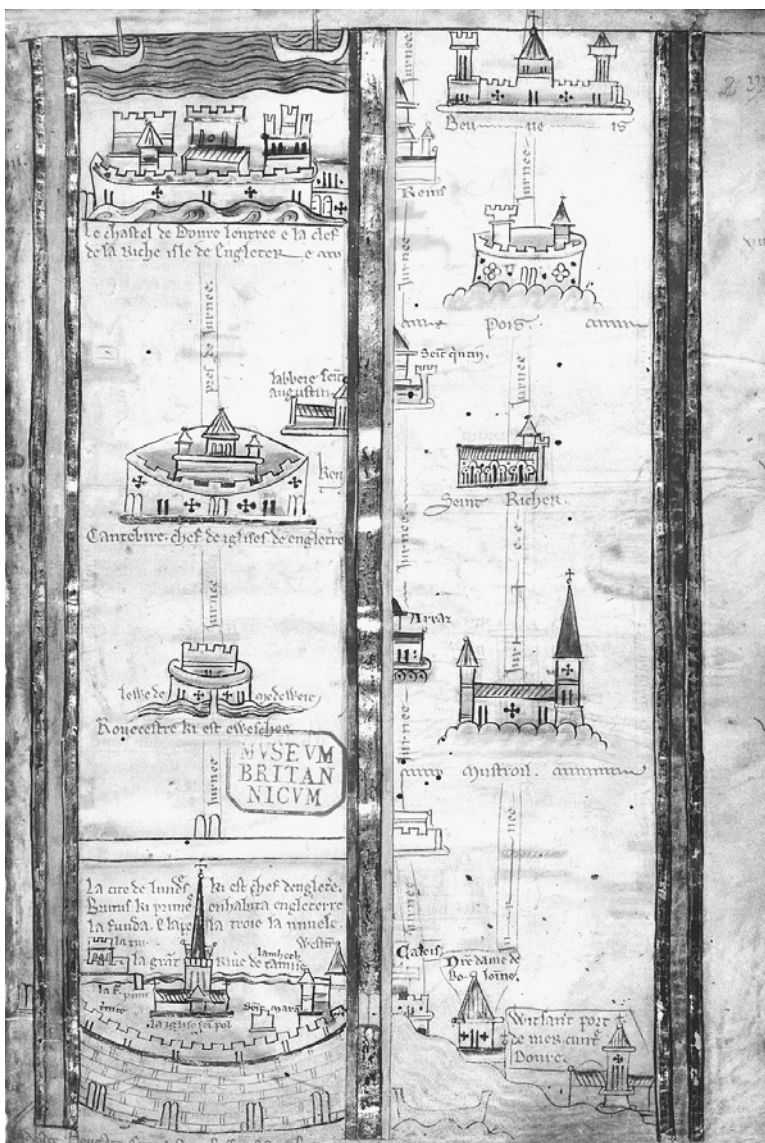 Le chastel de Doure lentree e la clef
de la riche isle de Engleter e
pres de Jurnee
labbeie seit
augustin
ken
Cantebire chef de iglises de engletere
Jurnee
lewe de medeweie
Rouecestre ki est eveschee
MVSEVM
BRITAN
NICVM
Jurnee
La cite de lundres ki est chef dengletere.
Brutus ki primes enhabita engleterre
la funda. E lapela troie la nuvele.
la tur
Westm
lamheth
la grant rive de tamise
punt
la iglise sei pol
Jurnee
Beu ue is
Jurnee
Reins
Jurnee
Pois.
Seit qntin.
Jurnee
Jurnee
Seint Richer.
Jurnee
Arraz
Jurnee
Jurnee
Mustroil.
Jurnee
Caleis
Nre dame de
Boloine.
Witsant port
de mer cuntre
Doure.